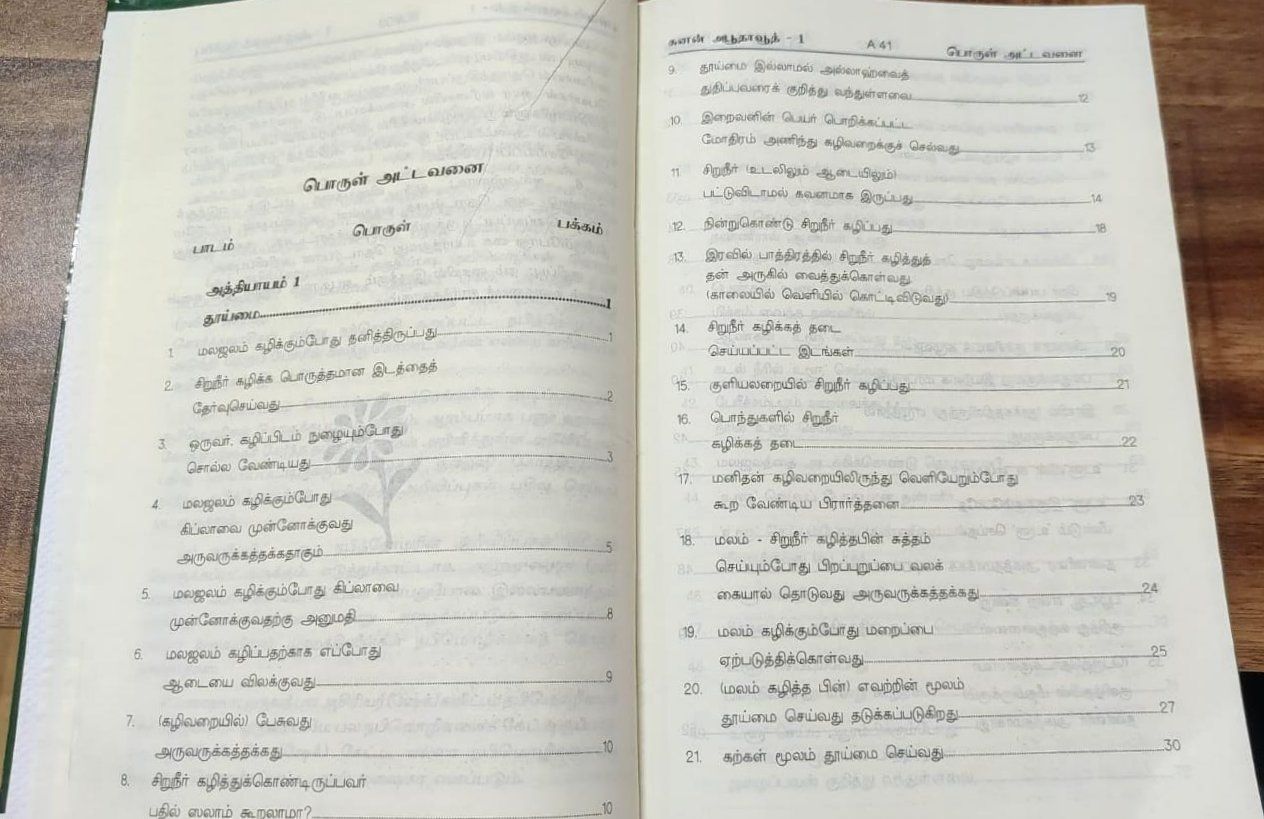 பொருள் அட்டவணை
பாடம் பொருள் பக்கம்
அத்தியாயம் 1
தூய்மை 1
1. மலஜலம் கழிக்கும்போது தனித்திருப்பது 1
2. சிறுநீர் கழிக்க பொருத்தமான இடத்தைத்
தேர்வுசெய்வது 2
3. ஒருவர், கழிப்பிடம் நுழையும்போது
சொல்ல வேண்டியது 3
4. மலஜலம் கழிக்கும்போது
கிப்லாவை முன்னோக்குவது
அருவருக்கத்தக்கதாகும் 5
5. மலஜலம் கழிக்கும்போது கிப்லாவை
முன்னோக்குவதற்கு அனுமதி 8
6. மலஜலம் கழிப்பதற்காக எப்போது
ஆடையை விலக்குவது 9
7. (கழிவறையில்) பேசுவது
அருவருக்கத்தக்கது 10
8. சிறுநீர் கழித்துக்கொண்டிருப்பவர்
பதில் ஸலாம் கூறலாமா? 10
சுனன் அபூதாவூத் - 1 A 41 பொருள் அட்டவணை
9. தூய்மை இல்லாமல் அல்லாஹ்வைத்
துதிப்பவரைக் குறித்து வந்துள்ளவை 12
10. இறைவனின் பெயர் பொறிக்கப்பட்ட
மோதிரம் அணிந்து கழிவறைக்குச் செல்வது 13
11. சிறுநீர் (உடலிலும் ஆடையிலும்)
பட்டுவிடாமல் கவனமாக இருப்பது 14
12. நின்றுகொண்டு சிறுநீர் கழிப்பது 18
13. இரவில் பாத்திரத்தில் சிறுநீர் கழித்துத்
தன் அருகில் வைத்துக்கொள்வது
(காலையில் வெளியில் கொட்டிவிடுவது) 19
14. சிறுநீர் கழிக்கத் தடை
செய்யப்பட்ட இடங்கள் 20
15. குளியலறையில் சிறுநீர் கழிப்பது 21
16. பொந்துகளில் சிறுநீர்
கழிக்கத் தடை 22
17. மனிதன் கழிவறையிலிருந்து வெளியேறும்போது
கூற வேண்டிய பிரார்த்தனை 23
18. மலம் - சிறுநீர் கழித்தபின் சுத்தம்
செய்யும்போது பிறப்புறுப்பை வலக்
கையால் தொடுவது அருவருக்கத்தக்கது 24
19. மலம் கழிக்கும்போது மறைப்பை
ஏற்படுத்திக்கொள்வது 25
20. (மலம் கழித்த பின்) எவற்றின் மூலம்
தூய்மை செய்வது தடுக்கப்படுகிறது 27
21. கற்கள் மூலம் தூய்மை செய்வது 30